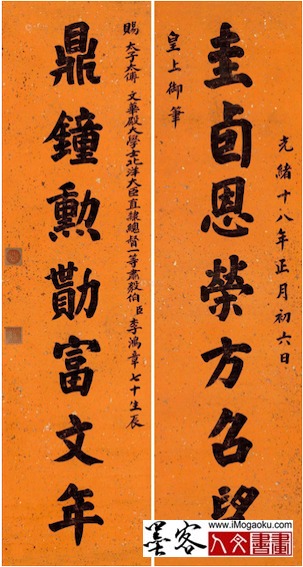 光緒十八年正月初六日
圭卣恩榮方召望
皇上御筆
賜太子太傅文華殿大學士北洋大臣直隸總督一等肅毅伯臣李鴻章七十生辰
鼎鐘勳勩富文年
墨客
www.iMogaoku.com
人文書畫